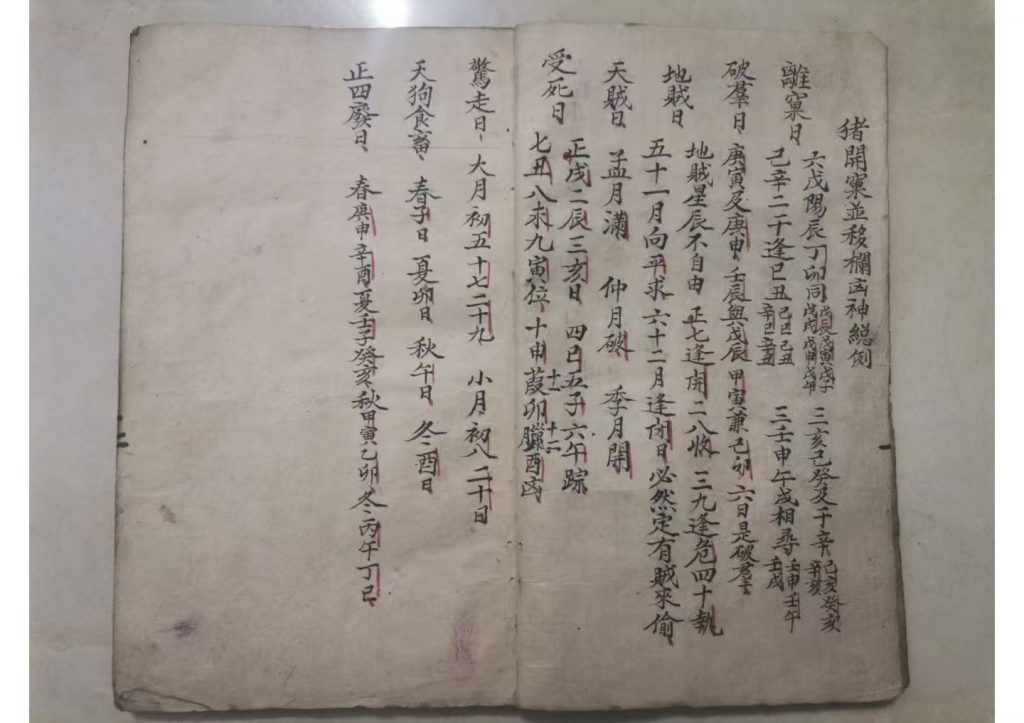 猪開窠並移欄凶神總例
離窠日 六戊陽辰丁卯同 戊辰戊寅戊子 戊戌戊申戊午 三亥己癸及千辛 己亥癸亥 辛亥
己辛二干逢巳丑 己巳己丑 辛巳辛丑 三壬申午戌相尋 壬申壬午 壬戌
破羣日 庚寅及庚申 壬辰與戊辰 甲寅兼己卯 六日是破羣
地賊日 地賊星辰不自由 正七逢開二八收 三九逢危四十執
五十一月向平求 六十二月逢闭日 必然定有賊來偷
天賊日 孟月滿 仲月破 季月開
受死日 正戌二辰三亥日 四巳五子六午踪
七丑八未九寅位 十申葭卯臘酉凶 十一 十二
驚走日 大月初五十七二十九 小月初八二十日
天狗食畜 春子日 夏卯日 秋午日 冬酉日
正四廢日 春庚申辛酉夏壬子癸亥秋甲寅乙卯冬丙午丁巳